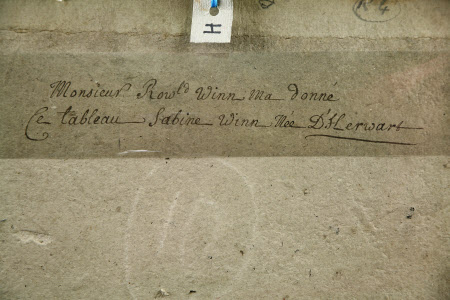 H
K 4
Monsieur Rowld Winn ma donné
Ce tableau Sabine Winn Née D'Herwart